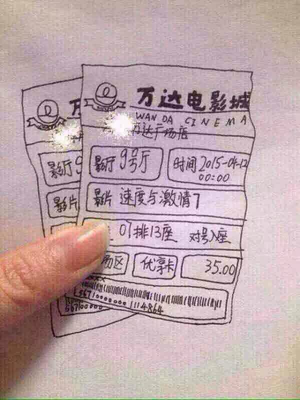 万达电影城
WANDA CINEMA
万达广场店
影厅 9号厅 时间 2015-04-12
00:00
影片 速度与激情7
07排13座 对号入座
区 优享卡 35.00
影厅
影片